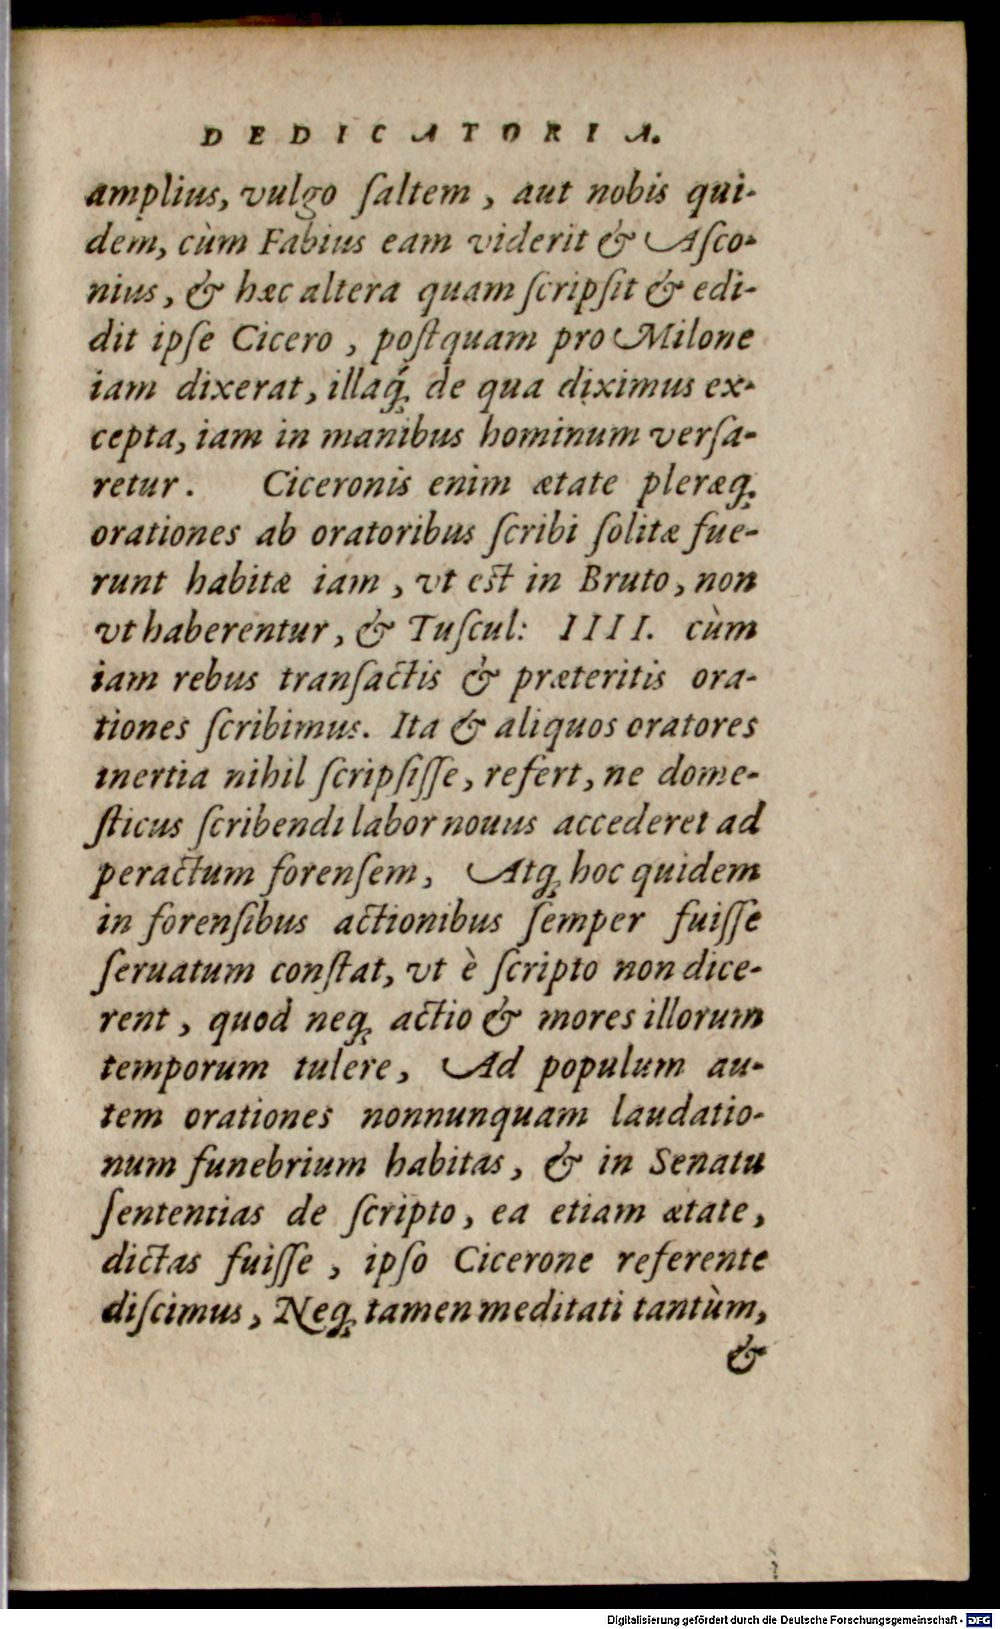 DEDICATORIA.
amplius, vulgo ſaltem, aut nobis qui-
dem, cùm Fabius eam viderit & Aſco-
nius, & hæc altera quam ſcripſit & edi-
dit ipſe Cicero, poſtquam pro Milone
iam dixerat, illaq́; de qua diximus ex-
cepta, iam in manibus hominum verſa-
retur. Ciceronis enim ætate pleræq;
orationes ab oratoribus ſcribi ſolitæ fue-
runt habitæ iam, vt eſt in Bruto, non
vt haberentur, & Tuſcul: IIII. cùm
iam rebus tranſactis & præteritis ora-
tiones ſcribimus. Ita & aliquos oratores
inertia nihil ſcripſiſſe, refert, ne dome-
ſticus ſcribendi labor nouus accederet ad
peractum forenſem, Atq; hoc quidem
in forenſibus actionibus ſemper fuiſſe
ſeruatum conſtat, vt è ſcripto non dice-
rent, quod neq; actio & mores illorum
temporum tulere, Ad populum au-
tem orationes nonnunquam laudatio-
num funebrium habitas, & in Senatu
ſententias de ſcripto, ea etiam ætate,
dictas fuiſſe, ipſo Cicerone referente
diſcimus, Neq; tamen meditati tantùm,
&
Digitalisierung gefördert durch die Deutsche Forschungsgemeinschaft - DFG